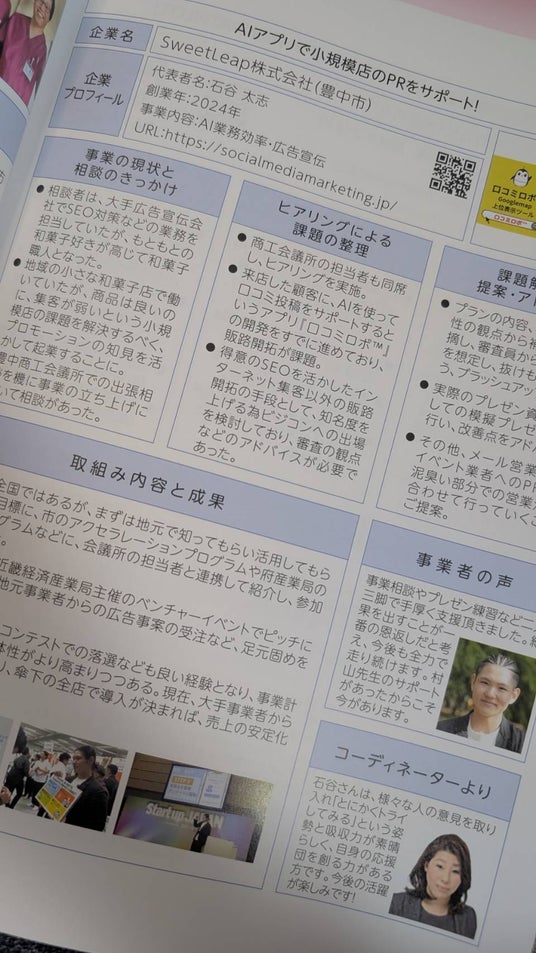 AIアプリで小規模店のPRをサポート!
企業名
SweetLeap株式会社(豊中市)
企業
プロフィール
代表者名:石谷 太志
創業年:2024年
事業内容:AI業務効率・広告宣伝
URL:https://socialmediamarketing.jp/
ロコミロボ
Googlemap
上位表示ツール
ロコミロボ
事業の現状と
相談のきっかけ
● 相談者は、大手広告宣伝会
社でSEO対策などの業務を
担当していたが、もともとの
和菓子好きが高じて和菓子
職人となった。
● 地域の小さな和菓子店で働
いていたが、商品は良いの
に、集客が弱いという小規
模店の課題を解決するべく、
プロモーションの知見を活
かして起業することに。
豊中商工会議所での出張相
を機に事業の立ち上げに
いて相談があった。
ヒアリングによる
課題の整理
● 商工会議所の担当者も同席
し、ヒアリングを実施。
● 来店した顧客に、AIを使って
口コミ投稿をサポートすると
いうアプリ『ロコミロボ™』
の開発をすでに進めており、
販路開拓が課題。
● 得意のSEOを活かしたイン
ターネット集客以外の販路
開拓の手段として、知名度を
上げる為ビジコンへの出場
を検討しており、審査の観点
などのアドバイスが必要で
あった。
課題解
提案・ア
● プランの内容、
性の観点から補
摘し、審査員から
を想定し、抜けも
う、ブラッシュアッ
● 実際のプレゼン資
しての模擬プレゼ
行い、改善点をアド
● その他、メール営業
イベント業者へのPR
泥臭い部分での営業
合わせて行っていくこ
ご提案。
取組み内容と成果
全国ではあるが、まずは地元で知ってもらい活用してもら
目標に、市のアクセラレーションプログラムや府産業局の
グラムなどに、会議所の担当者と連携して紹介し、参加
近畿経済産業局主催のベンチャーイベントでピッチに
地元事業者からの広告事案の受注など、足元固めを
コンテストでの落選なども良い経験となり、事業計
体性がより高まりつつある。現在、大手事業者から
り、傘下の全店で導入が決まれば、売上の安定化
Startup JAPAN
事業者の声
事業相談やプレゼン練習など二
三脚で手厚く支援頂きました。
果を出すことが一
番の恩返しだと考
え、今後も全力で
走り続けます。村
山先生のサポート
があったからこそ
今があります。
コーディネーターより
石谷さんは、様々な人の意見を取り
入れ「とにかくトライ
してみる」という姿
勢と吸収力が素晴
らしく、自身の応援
団を創る力がある
方です。今後の活躍
が楽しみです!